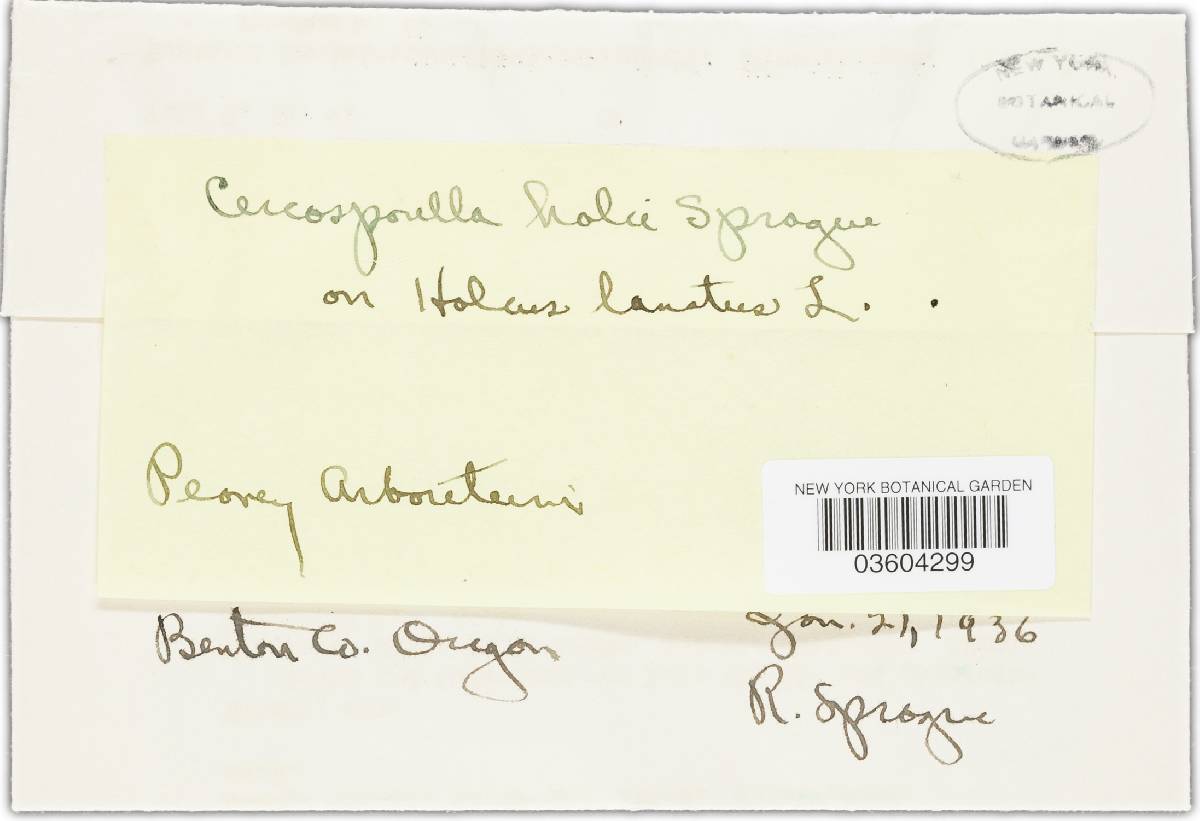 NEW YORK
BOTANICAL
GARDEN
Cercosporella holci Sprague
on Holcus lanatus L. .
Peavey Arboretum
NEW YORK BOTANICAL GARDEN
03604299
Benton Co. Oregon
Jan. 21, 1936
R. Sprague